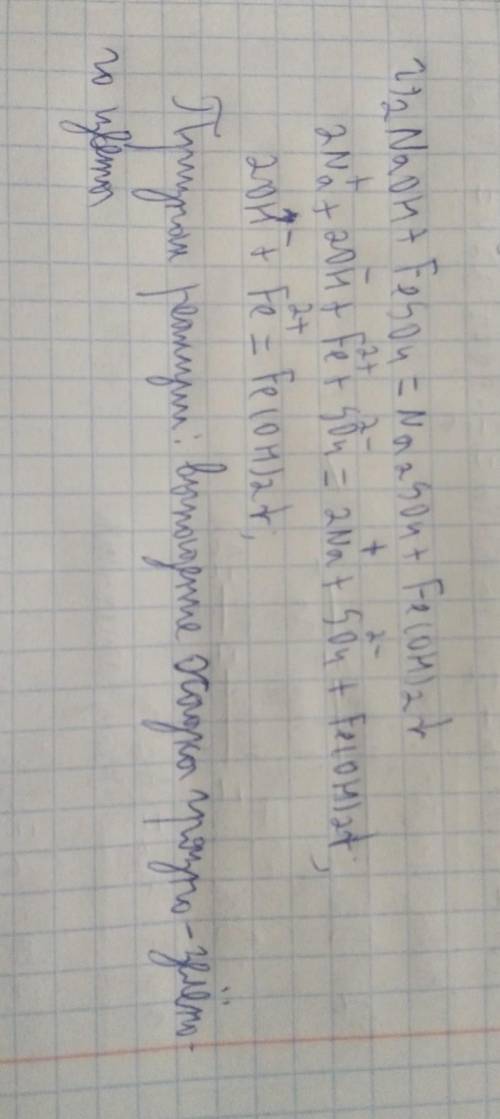 г) 2NaOH + FeSO₄ = Na₂SO₄ + Fe(OH)₂↓
2Na⁺ + 2OH⁻ + Fe²⁺ + SO₄²⁻ = 2Na⁺ + SO₄²⁻ + Fe(OH)₂↓;
2OH⁻ + Fe²⁺ = Fe(OH)₂↓;
Признак реакции: выпадение осадка грязно-зелёно-
го цвета